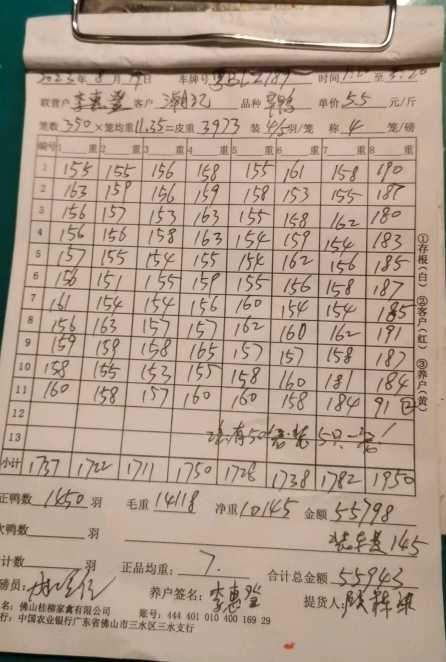 2023年8月19日 车牌号 时间 至
联营户 李惠莹 客户 潮记 品种 单价 5.5 元/斤
笼数 350 ×笼均重 11.35 =皮重 3973 装 4/5 羽/笼 称 4 笼/磅
编号 1 重 2 重 3 重 4 重 5 重 6 重 7 重 8 重
1 155 155 156 158 155 161 158 190
2 163 159 156 159 158 153 155 187
3 156 157 153 163 155 158 162 180
4 156 156 158 163 154 159 154 183
5 157 155 154 155 154 162 156 185
6 156 151 155 159 155 156 158 187
7 161 154 154 156 160 154 154 185
8 156 163 157 157 162 160 162 191
9 159 159 158 165 157 157 158 187
10 158 155 153 155 158 160 181 184
11 160 158 157 160 160 158 184 91 ②
12
13 有50 装5只一笼!
小计 1737 1722 1711 1750 1728 1738 1782 1950
正鸭数 1450 羽 毛重 14118 净重 10145 金额 55798
次鸭数 羽 装车费 145
计数 羽 正品均重: 7. 合计总金额 55943
磅员: 养户签名: 李惠莹 提货人:
名: 佛山桂柳家禽有限公司 账号: 444 401 010 400 169 29
行: 中国农业银行广东省佛山市三水区三水支行
①存根(白) ②客户(红) ③养户(黄)